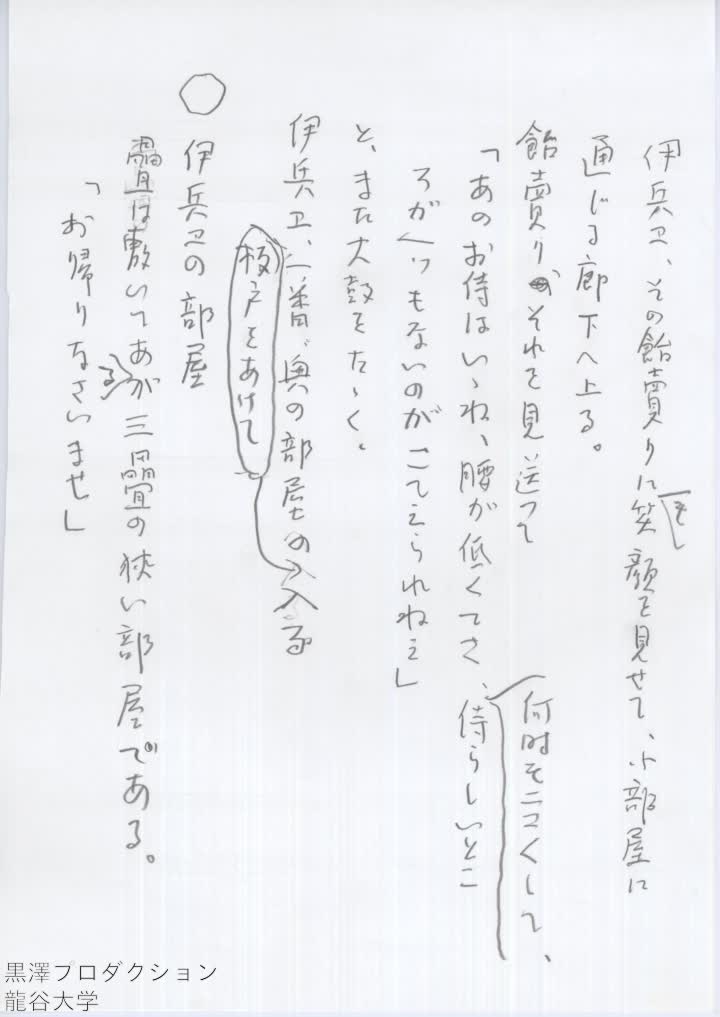 伊兵ヱ、その飴賣りに笑顔を見せて、小部屋に
そし
通じる廊下へ上る。
飴賣りそれを見送って
「あのお侍はいゝね、腰が低くてさ、侍らしいとこ
何時もニコニコくして、
ろがヘツもないのがこてえられねえ」
と、また太鼓をたゝく。
伊兵ヱ、一番奥の部屋の入る
板戸をあけて
○
伊兵ヱの部屋
畳は敷いてあるが三畳の狭い部屋である。
「お帰りなさいませ」
黒澤プロダクション
龍谷大学